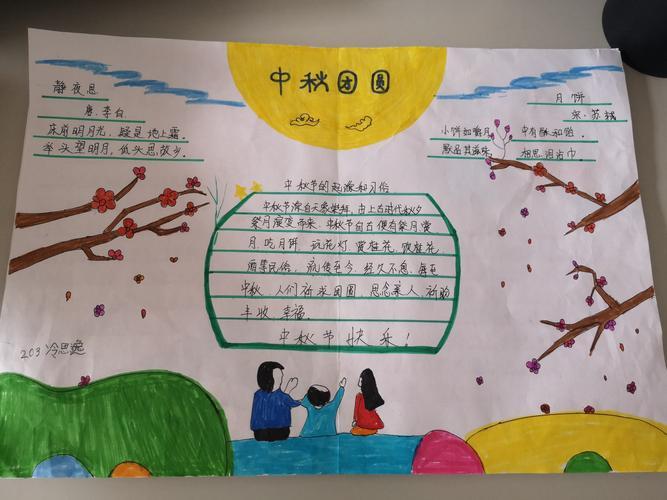 中秋团圆
静夜思
唐.李白
床前明月光,疑是地上霜。
举头望明月,低头思故乡。
月饼
宋.苏轼
小饼如嚼月 中有酥和饴.
默品其滋味 相思泪沾巾
中秋节的起源和习俗
中秋节源自天象崇拜,由上古时代秋夕
祭月演变而来.中秋节自古便有祭月,赏
月.吃月饼.玩花灯.赏桂花.饮桂花
酒等民俗.流传至今,经久不息.每至
中秋.人们祈求团圆.思念亲人.祈盼
丰收 幸福.
中秋节快乐!
203 冷思逸